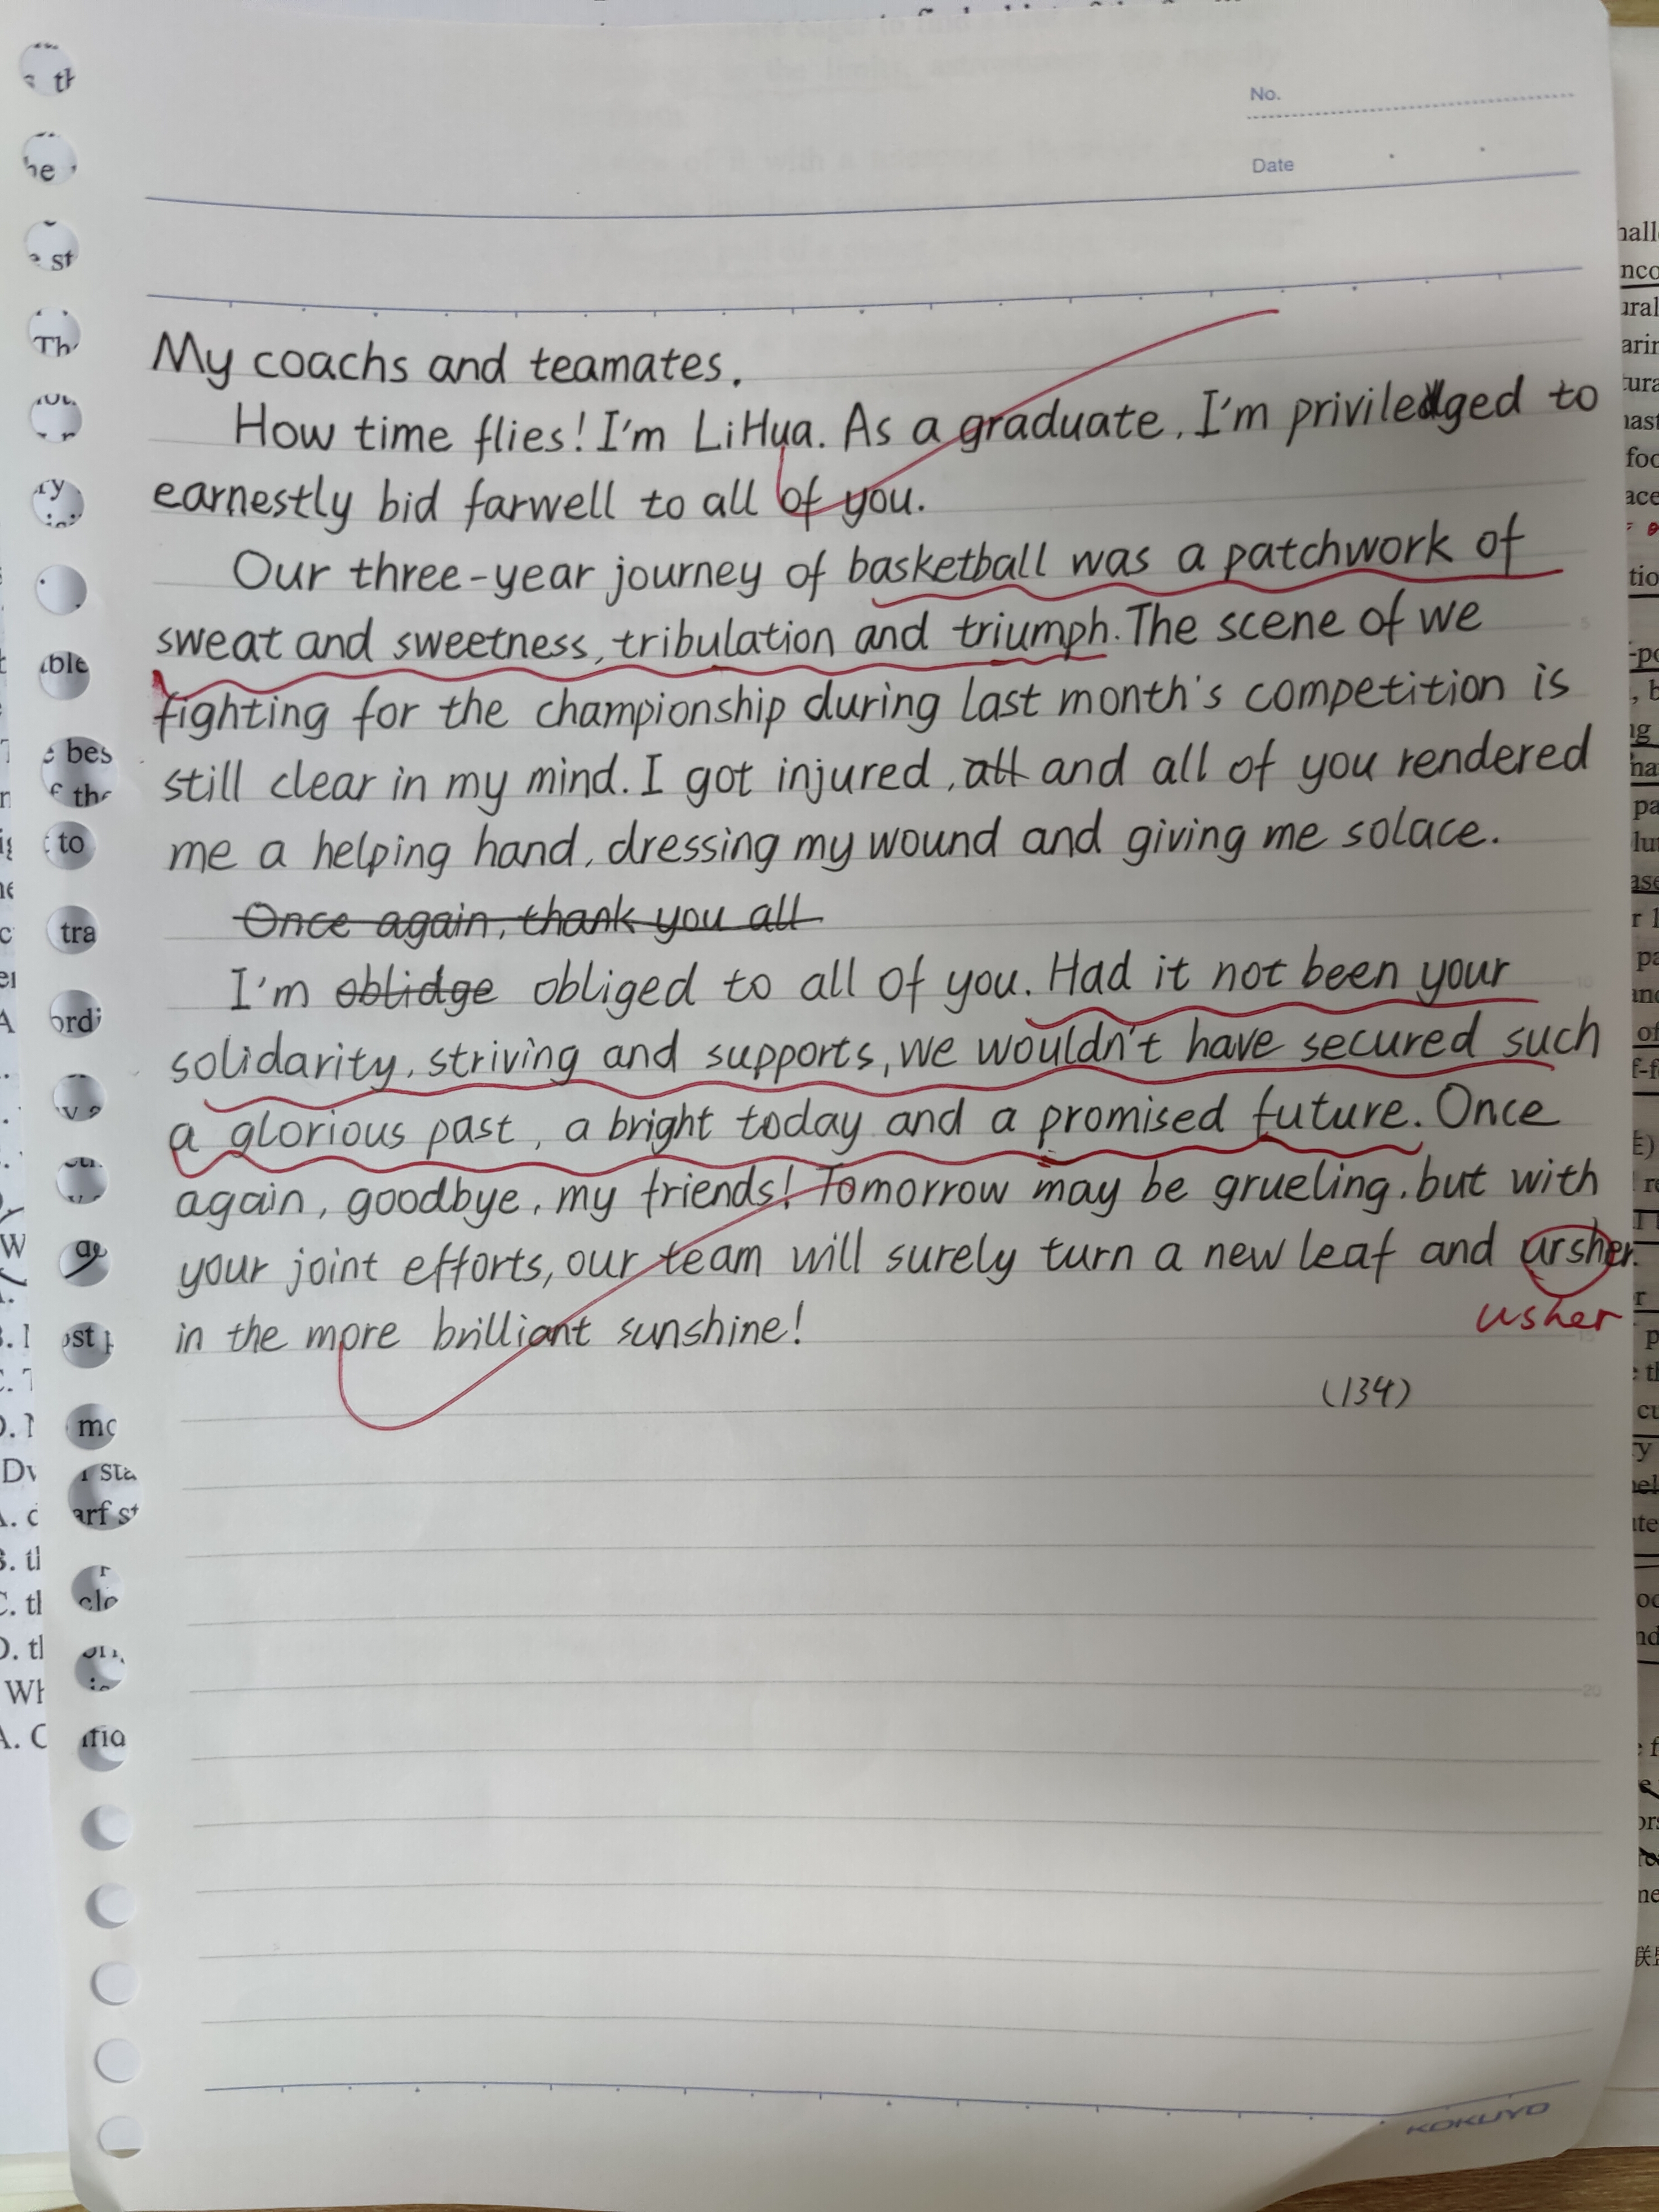 No.
Date
My coachs and teamates,
How time flies! I'm LiHua. As a graduate, I'm priviledged to
earnestly bid farwell to all of you.
Our three-year journey of basketball was a patchwork of
sweat and sweetness, tribulation and triumph. The scene of we
fighting for the championship during last month's competition is
still clear in my mind. I got injured, all and all of you rendered
me a helping hand, dressing my wound and giving me solace.
Once again, thank you all
I'm oblidge obliged to all of you. Had it not been your
solidarity, striving and supports, we wouldn't have secured such
a glorious past, a bright today and a promised future. Once
again, goodbye, my friends! Tomorrow may be grueling, but with
your joint efforts, our team will surely turn a new leaf and ursher
usher
in the more brilliant sunshine!
(134)
KOKUYO